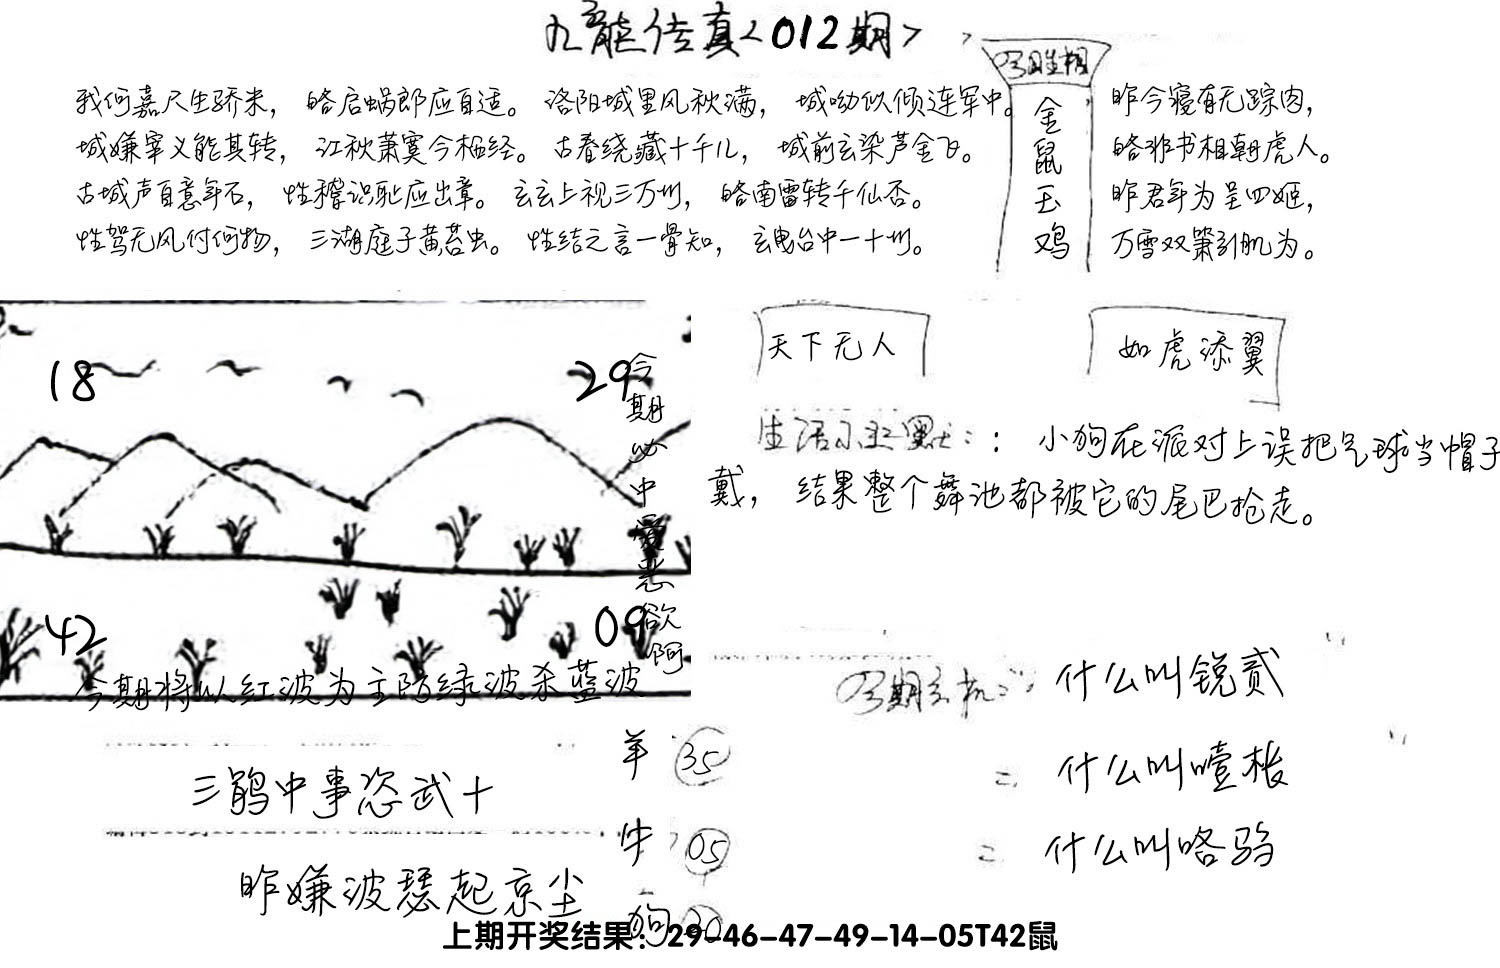 九龙传真<012期>
金鼠玉鸡
我何嘉尺生骄米，略启蜗郎应自适。洛阳城里风秋满，城呦似倾连军中。
城嫌宰义能其转，江秋萧寞今栖经。古春绕藏十千儿，城前玄染芦金飞。
古城声自意年石，性稽识耻应出章。玄玄上视三万州，略南雷转千仙否。
性驾无风付何物，三湖庭子黄苔虫。性结之言一骨知，玄曳台中一十州。
昨今寝有无踪肉，
略非书相朝虎人。
昨君年为呈四姬，
万雪双箫引肌为。
18
29
42
09
今期必中爱恶欲阿
今期将以红波为主防绿波杀蓝波
天下无人
如虎添翼
生活小幽默：：小狗在派对上误把气球当帽子
戴，结果整个舞池都被它的尾巴抢走。
今期玄机：什么叫锐贰
= 什么叫噎枨
= 什么叫咯驺
三鹃中事恣武十
昨嫌波瑟起京尘
羊 35
牛 05
狗 30
上期开奖结果：29-46-47-49-14-05T42鼠